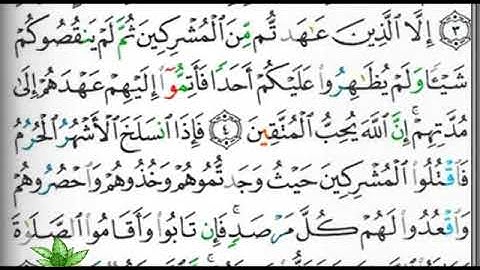 ٣ إِلَّا ٱلَّذِينَ عَٰهَدتُّم مِّنَ ٱلْمُشْرِكِينَ ثُمَّ لَمْ يَنقُصُوكُمْ
شَيْـًٔا وَلَمْ يُظَٰهِرُوا۟ عَلَيْكُمْ أَحَدًا فَأَتِمُّوٓا۟ إِلَيْهِمْ عَهْدَهُمْ إِلَىٰ
مُدَّتِهِمْ ۚ إِنَّ ٱللَّهَ يُحِبُّ ٱلْمُتَّقِينَ ٤ فَإِذَا ٱنسَلَخَ ٱلْأَشْهُرُ ٱلْحُرُمُ
فَٱقْتُلُوا۟ ٱلْمُشْرِكِينَ حَيْثُ وَجَدتُّمُوهُمْ وَخُذُوهُمْ وَٱحْصُرُوهُمْ
وَٱقْعُدُوا۟ لَهُمْ كُلَّ مَرْصَدٍ ۚ فَإِن تَابُوا۟ وَأَقَامُوا۟ ٱلصَّلَوٰةَ